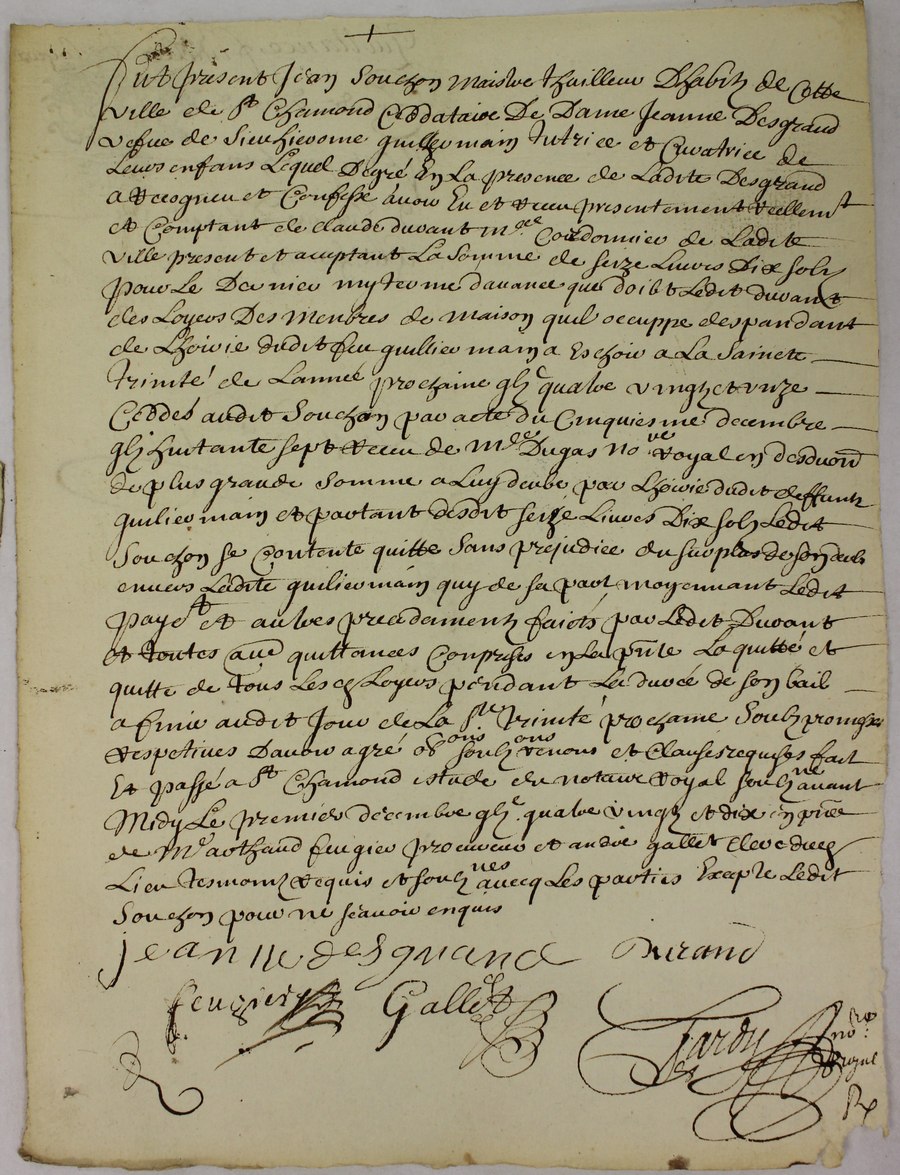 Fut present Jean Souchon Maistre thailleur Dhabitz de Cette
ville de St Chamond Ceddataire De Dame Jeanne Desgrand
vefue de Sieur hierosme guilliermain tutrice et Curatrice de
Leurs enfans Lequel Degré En La presence de Ladite Desgrand
a Recogneu et Confessé avoir Eu et receu presentement reellemt
et Comptant de claude durant mre Cordonnier de Ladite
ville present et acceptant La Somme de seize Livres Dix solz
pour Le Dernier my terme davance que doibt Ledit durant
des Loyers Des Menbres de maison quil occuppe despandant
de Lhoirie dudit feu guilliermain a Eschoir a La Saincte
trinité de Lannée prochaine gbjc quatre vingtz et unze
Ceddés audit Souchon par acte du Cinquiesme decembre
gbjc huitante sept receu de mre Dugas nore Royal en desduon
de plus grande Somme a Luy deube par Lhoirie dudit deffunt
guiliermain et partant desdit seize Livres Dix solz Ledit
Souchon se Contente quitte Sans prejudice du surplus de son deub
envers Ladite guiliermain quy de sa part moyennant Ledit
payet et autres precedamment faicts par Ledit Durant
et toutes au quittances Comprises en La pnte La quitté et
quitte de tous Lesd Loyers pendant La durée de son bail
a finir audit Jour de La Ste trinité prochaine Soubz promesses
respetives Davoir agré obons soubzons renons et Clauses requises fait
Et passé a St Chamond estude du notaire Royal soubzne avant
Midy Le premier decembre gbjc quatre vingtz et dix en pnce
de Mre arthaud feugier procureur et andre gallet clerc dud
Lieu tesmoins requis et soubznes avecq Les parties Excepte Ledit
Souchon pour ne scavoir enquis
jeanne desgrand Durand
feugier Gallet
Hardy nore Royal